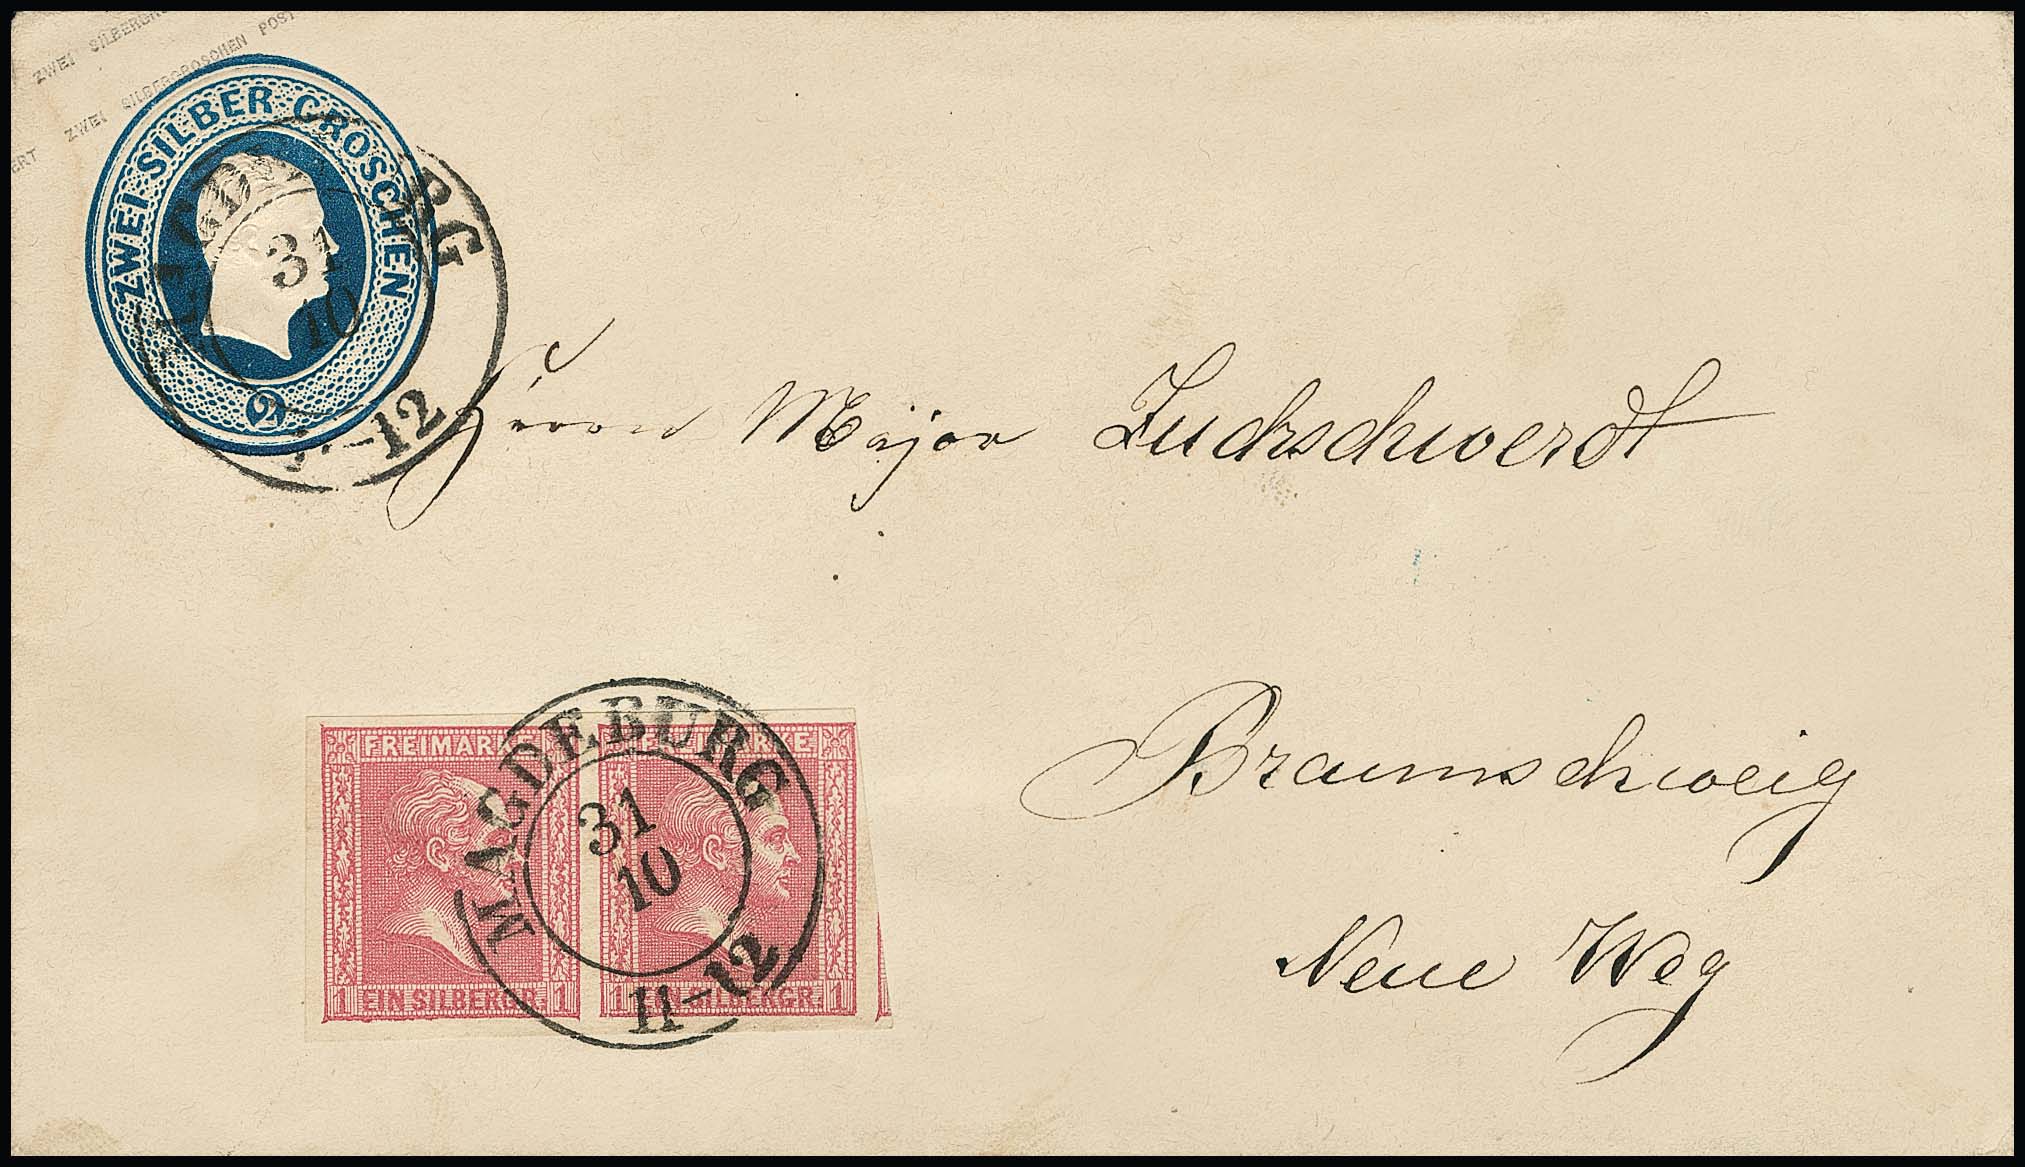 ZWEI SILBERGR
ZWEI SILBERGROSCHEN POST
ERT
ZWEI·SILBER-GROSCHEN
2
MAGDEBURG
31
10
11-12
Herrn Major Luchschwerdt
Braunschweig
Neue Weg
FREIMARKE FREIMARKE
MAGDEBURG
31
10
11-12
1 EIN SILBERGR. 1 1 EIN SILBERGR. 1